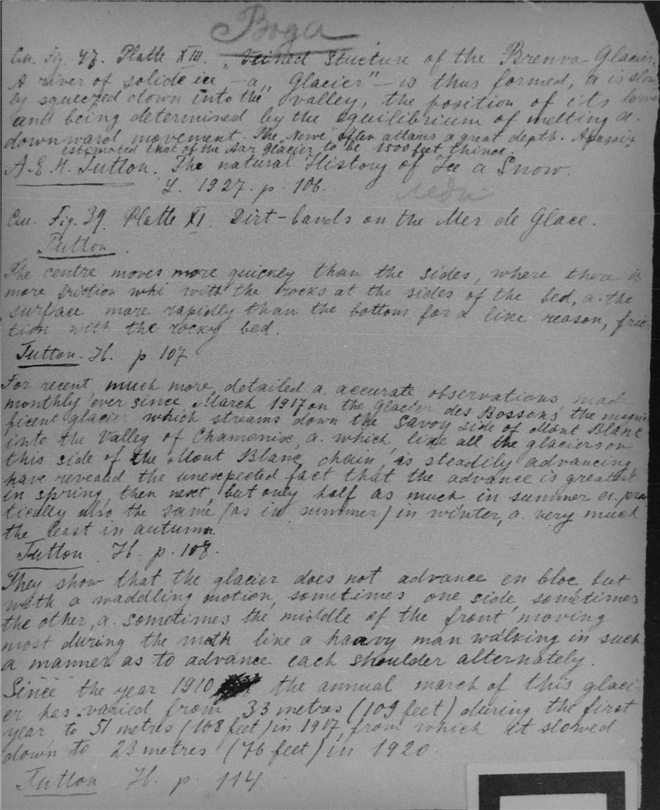 Вода
См. Fig. 47. Platte XIII. "Veined Stucture of the Brenva Glacier.
A river of solide ice - a "Glacier" - is thus formed, a is slow
ly squeezed down into the valley, the position of its lower
and being determined by the equilibrium of melting a.
downward movement. The Neve often attains a great depth. Agassiz
estimated that of the Aar Glacier to be 1500 feet thick.
A. E. H. Tutton. The natural History of Ice a Snow.
L. 1927. p. 106.
См. Fig. 39. Platte XI. Dirt-bands on the Mer de Glace.
Tutton.
The centre moves more quickly than the sides, where there is
more friction whi with the rocks at the sides of the bed, a. the
surface more rapidly than the bottom for a like reason, fric-
tion with the rocky bed.
Tutton. Ib. p 107
For recent much more detailed a accurate observations made
monthly over since March 1917 on the Glacier des Bossons the magni
ficent glacier which streams down the Savoy side of Mont Blanc
into the Valley of Chamonix, a. which like all the glaciers on
this side of the Mont Blanc chain is steadily advancing
have revealed the unexpected fact that the advance is greatest
in spring, then next, but only half as much in summer a. prac
tically also the same (as in summer) in winter, a. very much
the least in autumn.
Tutton Ib. p. 108.
They show that the glacier does not advance en bloc but
with a waddling motion, sometimes one side, sometimes
the other, a. sometimes the middle of the front moving
most during the moth like a haavy man walking in such
a manner as to advance each shoulder alternately.
Since the year 1910 the annual march of this glaci-
er has varied from 33 metres (109 feet) during the first
year to 51 metres (168 feet) in 1917, from which it slowed
down to 23 metres (76 feet) in 1920.
Tutton Ib. p. 114